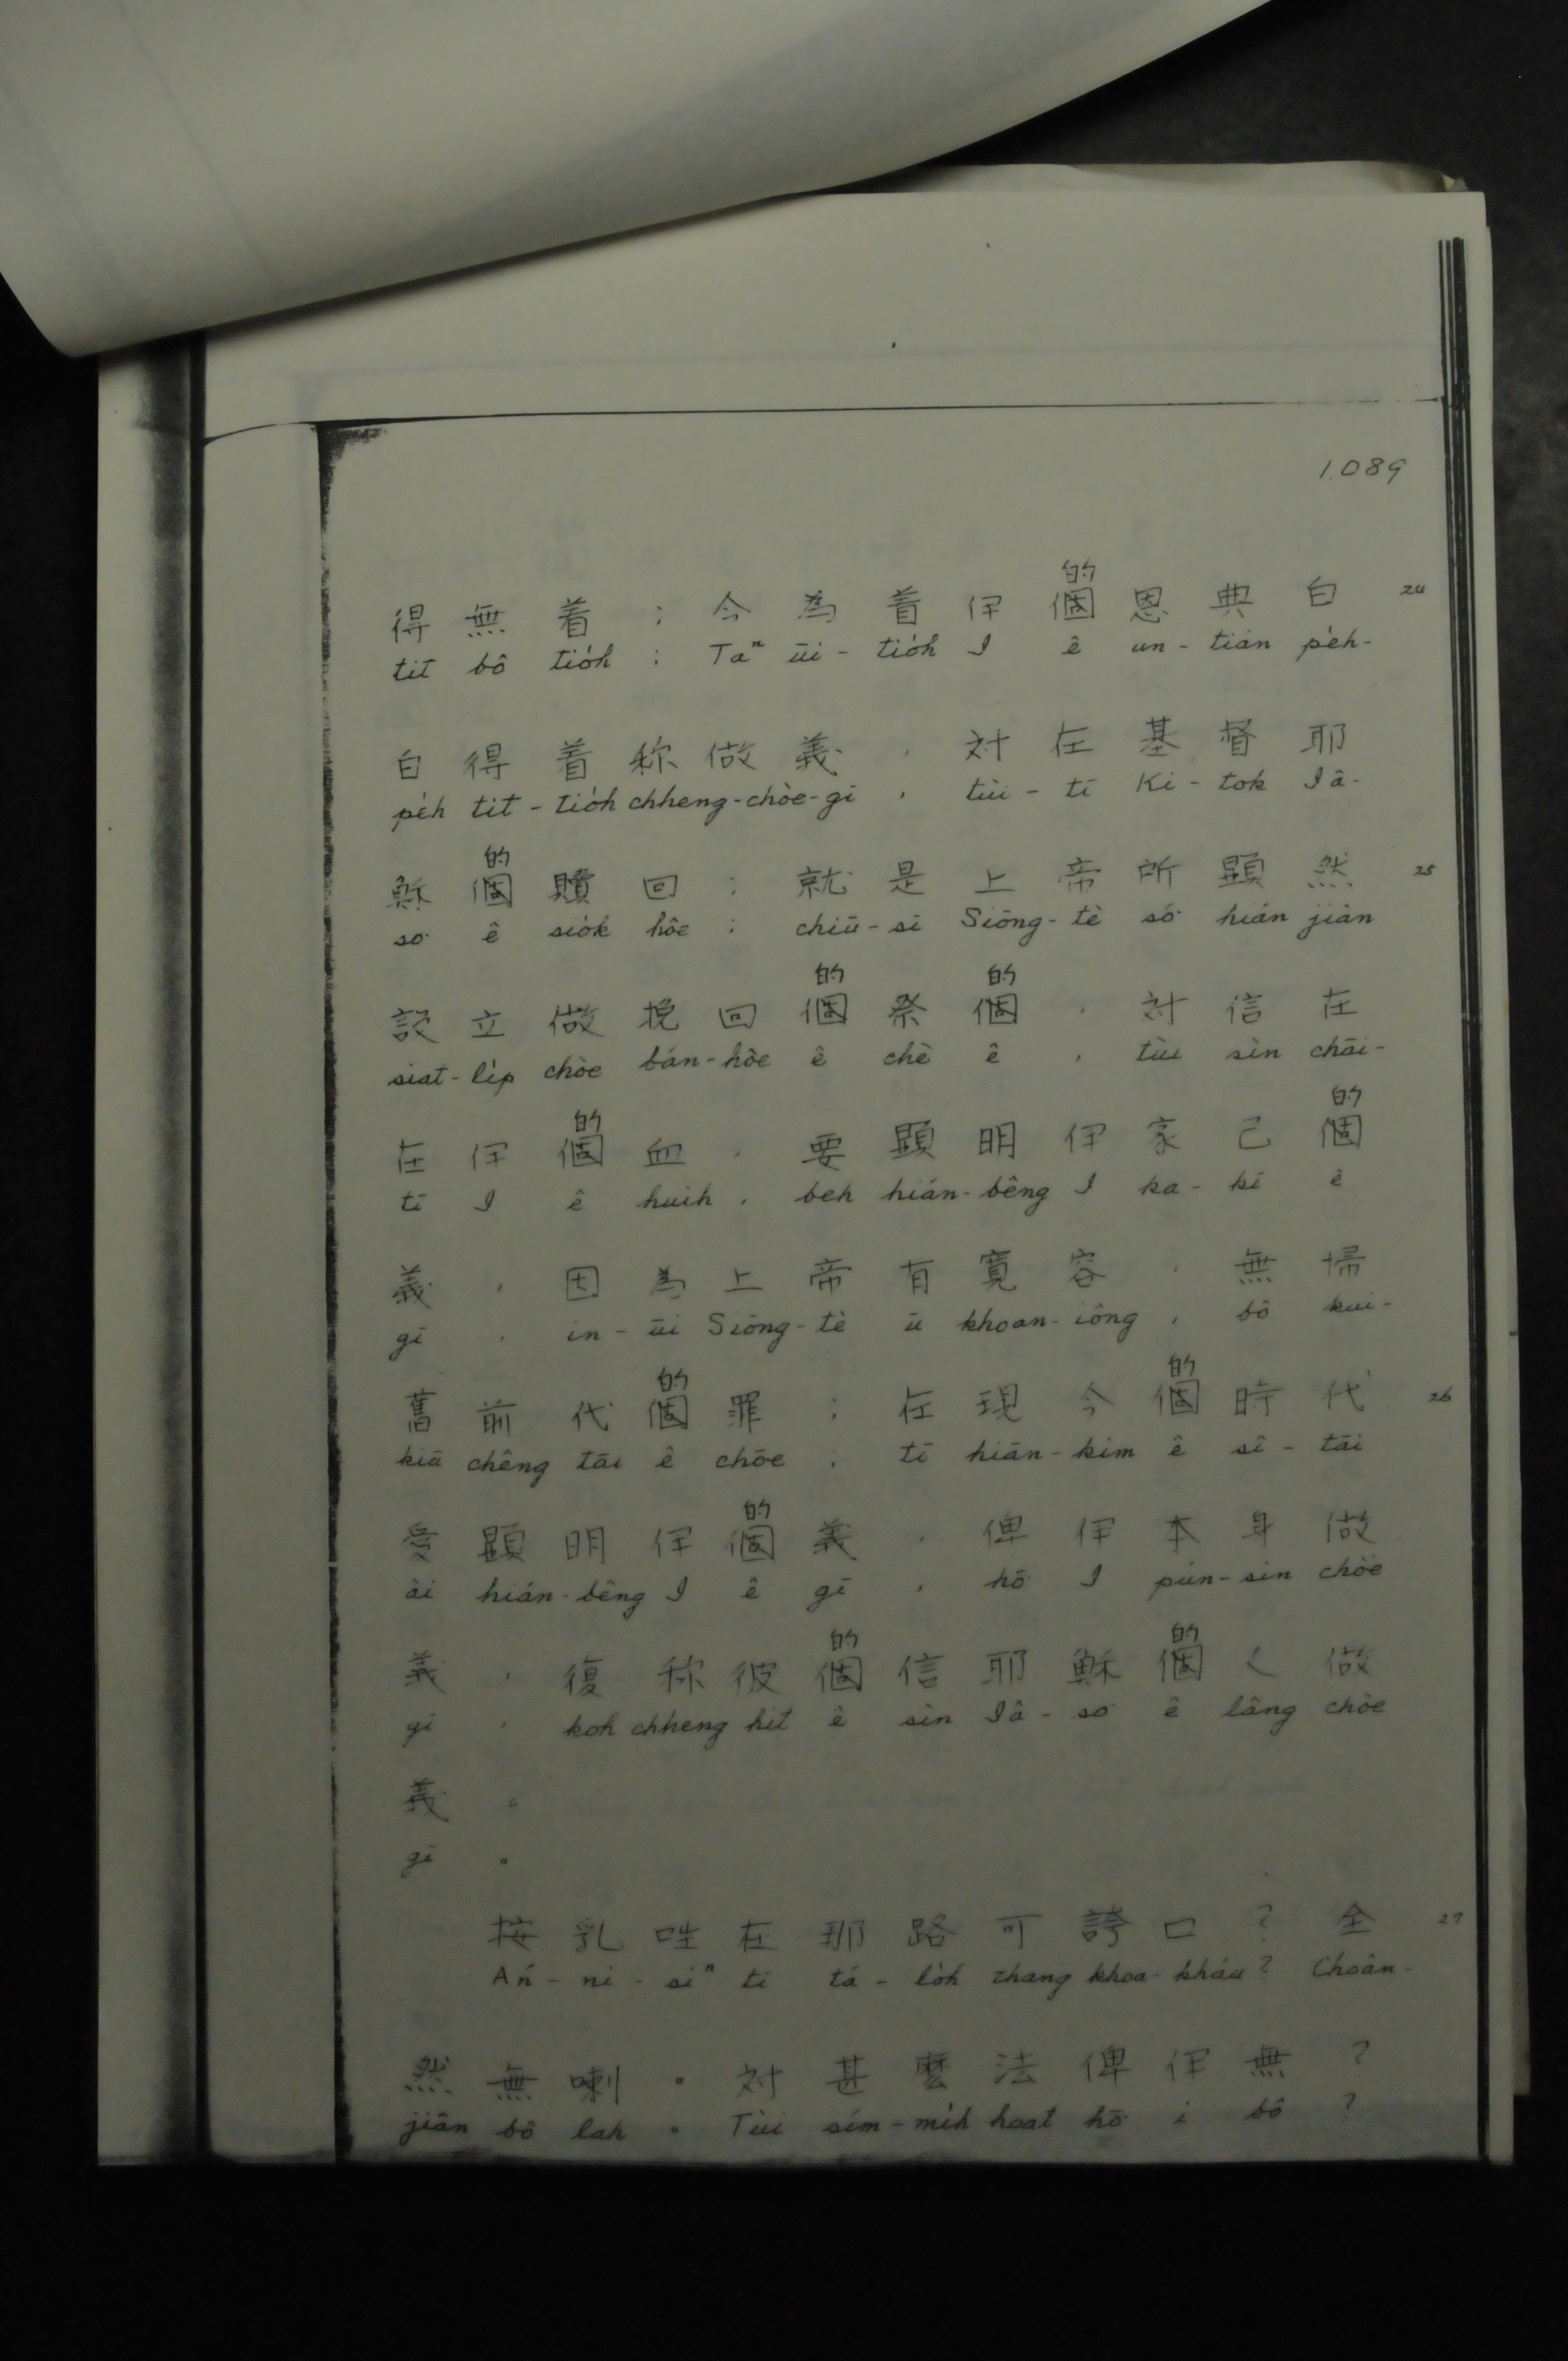 1.089
的
得無着；今為着伊個恩典白 24
tit bô tio̍h ; Taⁿ ūi-tio̍h I ê un-tián pe̍h-
白得着称做義，対在基督耶
pe̍h tit-tio̍h chheng-chòe-gī , tùi-tī Ki-tok Iâ-
的
穌個贖回；就是上帝所顕然 25
so͘ ê sio̍k hôe ; chiū-sī Siōng-tè só͘ hián jiân
的 的
設立做挽回個祭個，対信在
siat-li̍p chòe bán-hôe ê chè ê , tùi sìn chāi-
的 的
在伊個血，要顕明伊家己個
tī I ê huih , beh hián-bêng I ka-kī ê
義，因為上帝有寬容，無掃
gī , in-ūi Siōng-tè ū khoan-iông , bô kui-
的 的
舊前代個罪；在現今個時代 26
kiū chêng tāi ê chōe ; tī hiān-kim ê sî-tāi
的
愛顕明伊個義，俾伊本身做
ài hián-bêng I ê gī , hō͘ I pún-sin chòe
的 的
義，復称彼個信耶穌個人做
gī , koh chheng hit ê sìn Iâ-so͘ ê lâng chòe
義。
gī 。
按乳哖在那路可誇口？全 27
Án-ni-siⁿ tī tá-lo̍h thang khoa-kháu ? Choân-
然無喇。対甚麽法俾伊無？
jiân bô lah 。 Tùi sím-mi̍h hoat hō͘ i bô ?